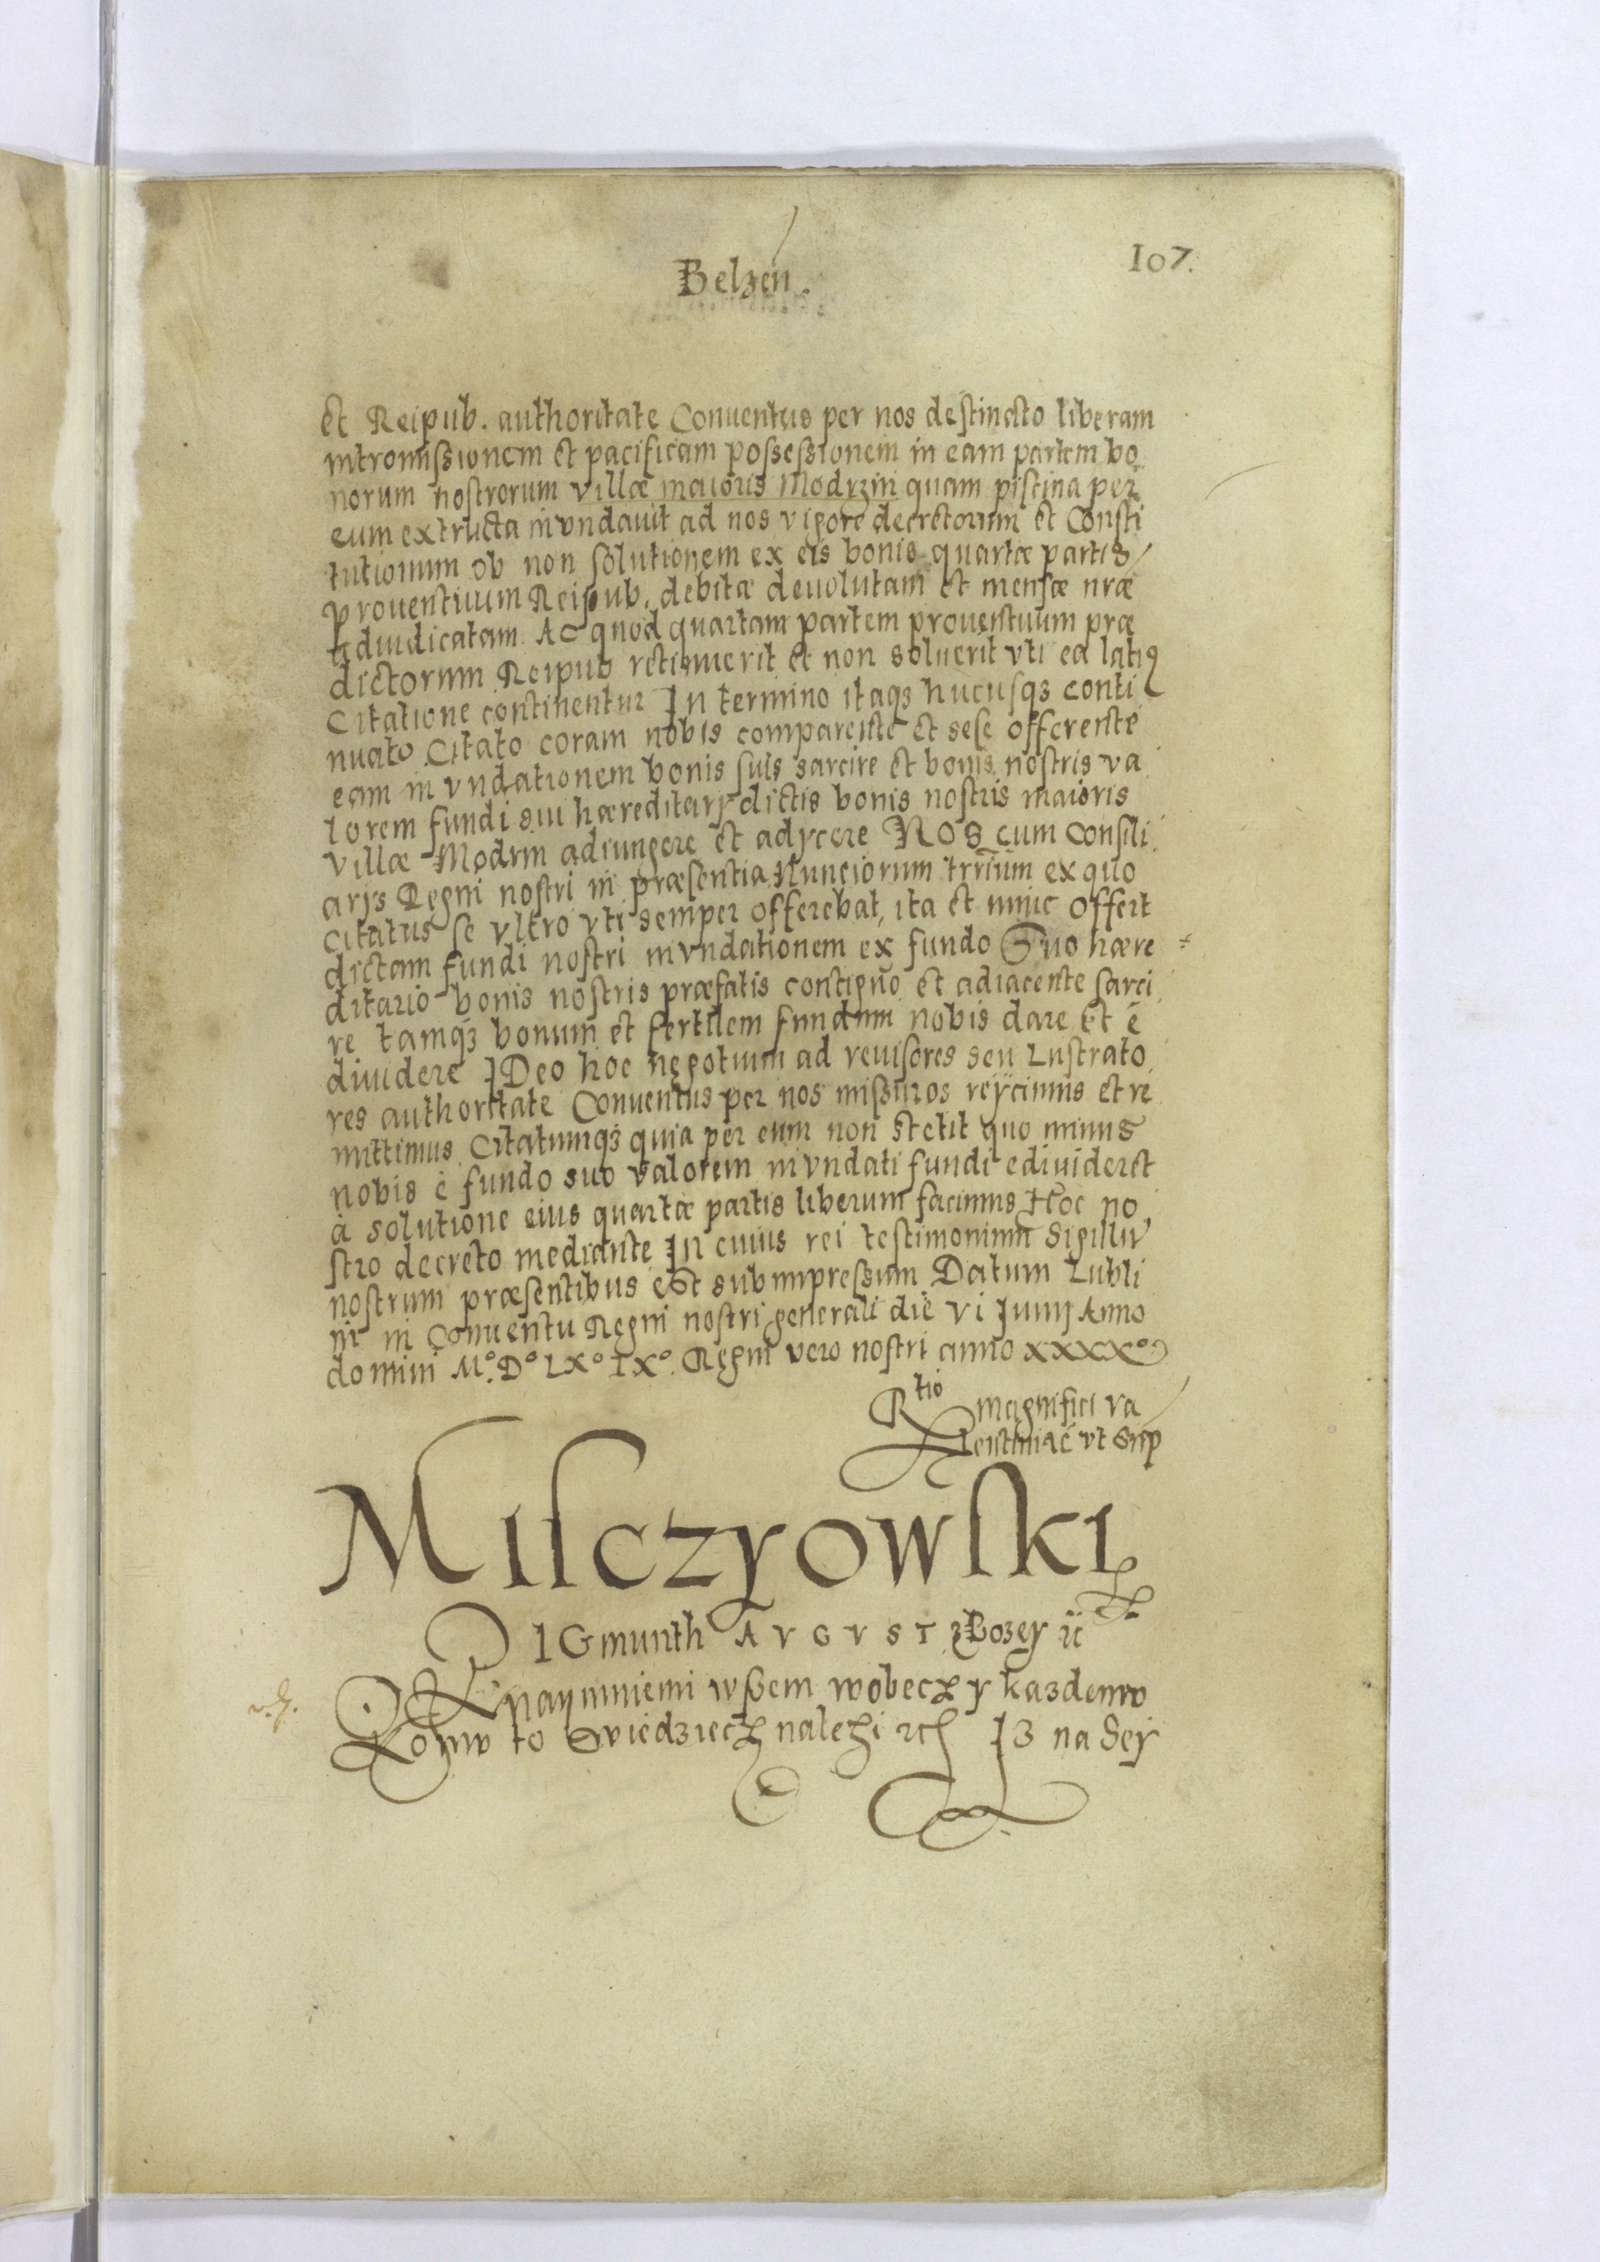 Belzen.
107.
et Reipub. authoritate Conuentus per nos destinato liberam
intromissionem et pacificam possessionem in eam partem bo
norum nostrorum villæ maioris Modrzin quam piscina per
eum extructa invndauit ad nos vigore decretorum et Consti
tutionum ob non solutionem ex eis bonis quartæ partis
prouentuum Reipub. debitæ deuolutam et mensæ nræ
adiudicatam. Ac quod quartam partem prouentuum præ
dictorum Reipub retinuerit et non soluerit vti ea latig
Citatione continentur In termino itaqȝ hucusqȝ conti
nuato Citato coram nobis comparente et sese offerente
eam invndationem bonis suis sarcire et bonis nostris va
lorem fundi sui hæreditarij dictis bonis nostris maioris
villæ Modrin adiungere et adycere NOS cum Consili
arijs Regni nostri in præsentia Nunciorum trrium ex quo
citatus se vltro vti semper offerebat, ita et nunc offert
dictam fundi nostri invndationem ex fundo Suo hære
ditario bonis nostris præfatis contiguo et adiacente sarci
re tamqȝ bonum et fertilem fundum nobis dare et e
diuidere IDeo hoc negotium ad reuisores seu Lustrato
res authoritate Conuentus per nos missuros reijcimus et re
mittimus Citatumqȝ quia per eum non stetit quo minus
nobis è fundo suo valorem invndati fundi ediuideret
à solutione eius quartæ partis liberum facimus Hoc no
stro decreto mediante In cuius rei testimonium Sigillu
nostrum præsentibus est subimpressum Datum Lubli
ni in Conuentu Regni nostri generali die vi Junij Anno
domini M.° D.° LX° IX°. Regni vero nostri anno XXXX°
Rtio magnifici Va
lentini ac vt sup
Milczyowski
ZIGmunth AVGVST z Bozey ic
Znaymniemi wszem wobecz y kazdemu
komu to wiedziecz nalezi ich Iz na Sey